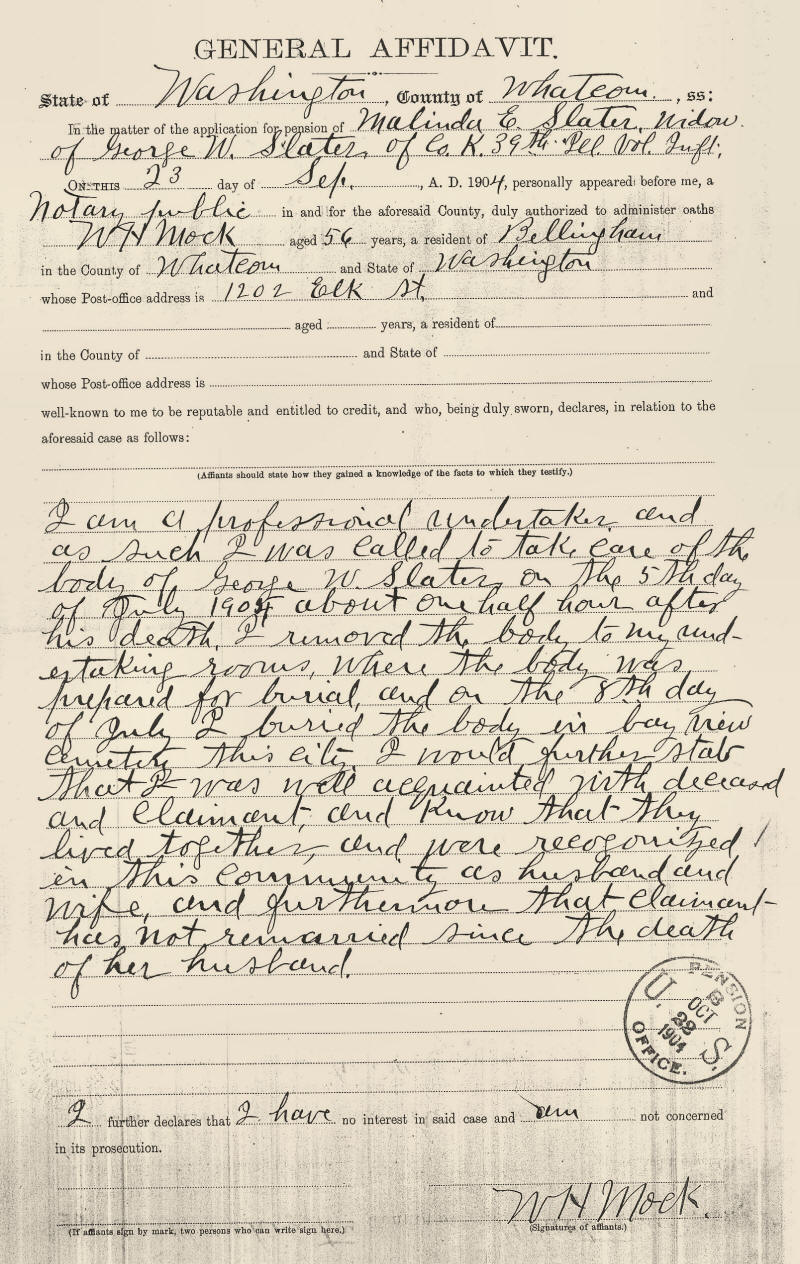 GENERAL AFFIDAVIT.
State of Washington, County of Whatcom, ss:
In the matter of the application for pension of Malinda E. Slater, widow
of George W. Slater, of Co. K. 39th Ill Vol. Inft,
ON THIS 23 day of Sep., A. D. 1904, personally appeared before me, a
Notary public in and for the aforesaid County, duly authorized to administer oaths
W H Mock aged 56 years, a resident of Bellingham
in the County of Whatcom and State of Washington
whose Post-office address is 1202 Elk St, and
aged years, a resident of
in the County of and State of
whose Post-office address is
well-known to me to be reputable and entitled to credit, and who, being duly sworn, declares, in relation to the
aforesaid case as follows:
(Affiants should state how they gained a knowledge of the facts to which they testify.)
I am a professional undertaker and
as such I was called to take care of the
body of George W. Slater, on the 5th day
of July 1904 about one half hour after
his death. I removed the body to my und-
ertaking rooms, where the body was
prepared for burial, and on the 8th day
of July I buried the body in bay view
cemetery this city. I would further state
that I was well acquainted with deceased
and Claimant, and Know that they
lived together, and were recogonized
in this Community as husband and
wife, and furthermore that Claimant
has not remarried since the death
of her husband.
U. S. PENSION OFFICE.
OCT
22
1904
I further declares that I have no interest in said case and am not concerned
in its prosecution.
W H Mock.
(If affiants sign by mark, two persons who can write sign here.) (Signatures of affiants.)